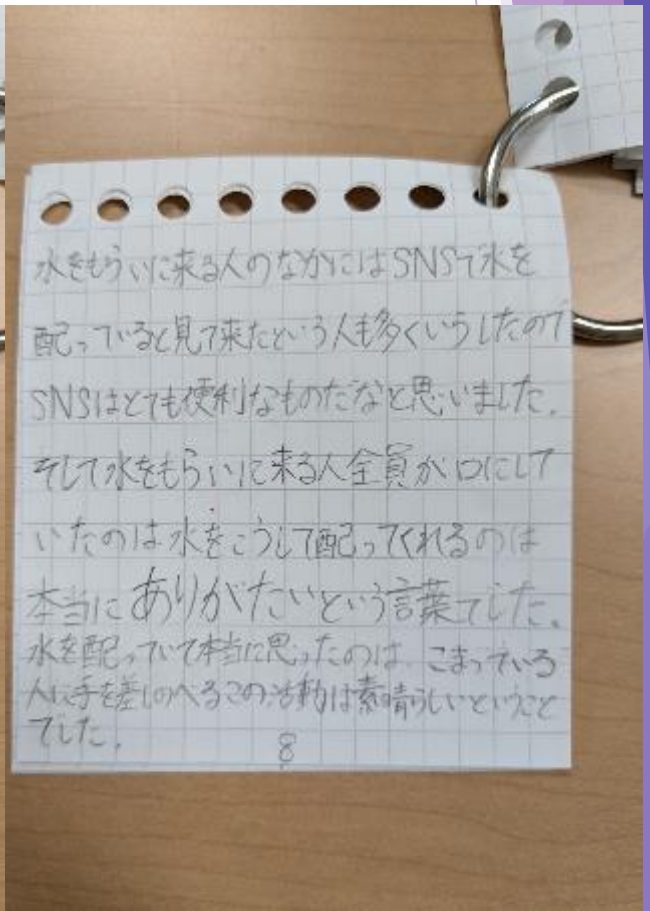 水をもらいに来る人のなかにはSNSで水を
配っていると見て来たという人も多くいらしたので
SNSはとても便利なものだなと思いました。
そして水をもらいに来る人全員が口にして
いたのは水をこうして配ってくれるのは
本当にありがたいという言葉でした。
水を配っていて本当に思ったのは、こまっている
人に手を差しのべるこの活動は素晴らしいということ
でした。
8